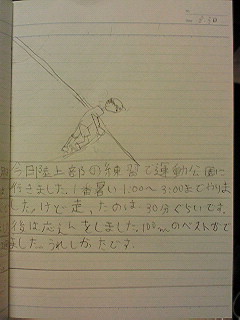 今日陸上部の練習で運動公園に
行きました。1番暑い1:00〜3:00までやりま
した。けど走ったのは30分ぐらいです。
後は応えんをしました。100mのベストがで
ました。うれしかったです。